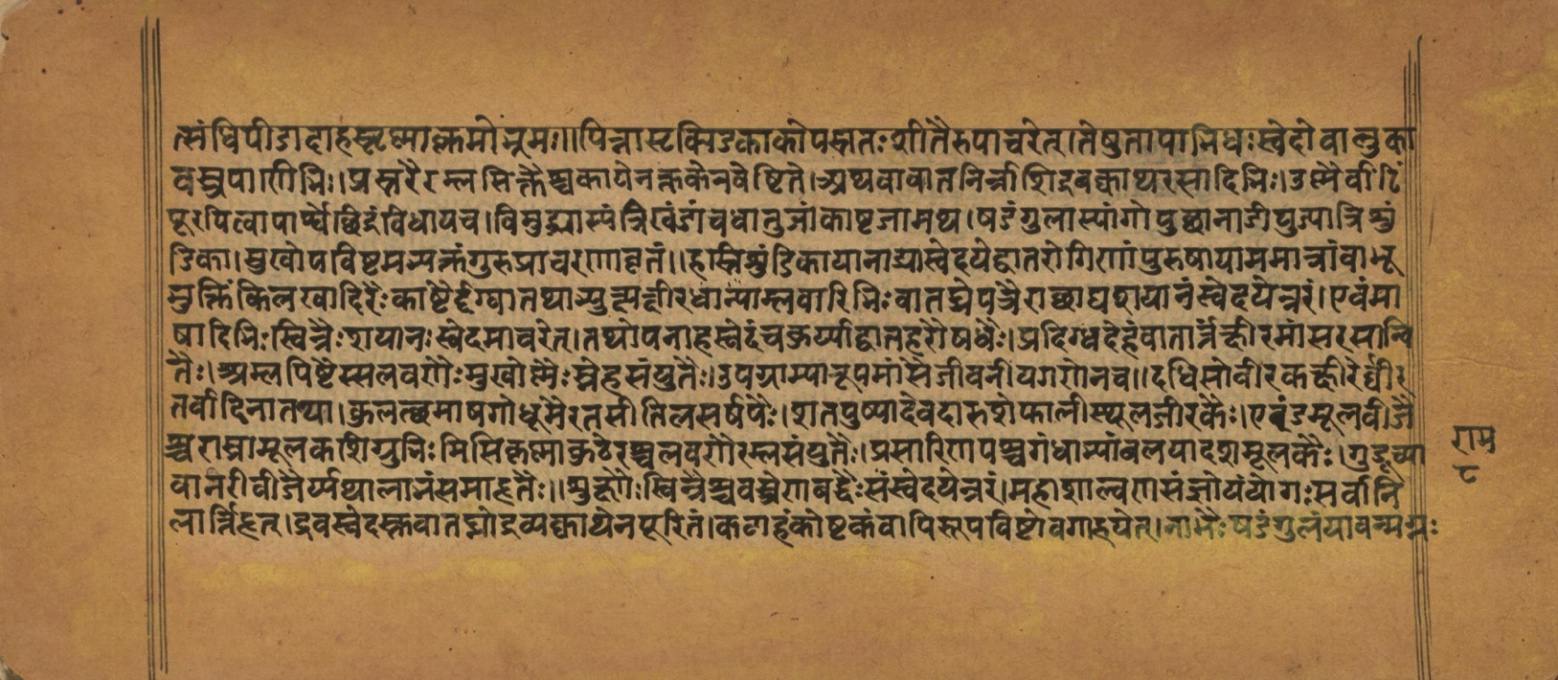 त्संधिपीडादाहस्तृष्माक्लमोभ्रमः॥पित्तास्टक्पिडकाकोपस्त्रातःशीतैरुपाचरेत्।तेषुतापाभिधःस्वेदोवालुका
वस्त्रपाणिभिः।प्रस्तरैरम्लसिक्तैश्चकायेनक्तकेनवेष्टिते।अथवावातनिर्न्नाशिद्रवक्वाथरसादिभिः।उष्मैर्वाटिं
पूरयित्वापार्श्वेछिद्रंविधायच।विमुद्र्यास्यंत्रिखंडांचधातुजांकाष्टजामथ।षडंगुलास्यांगोपुछानाडींपुंज्याद्विशुं
डिका।सुखोपविष्टमभ्यक्तंगुरुप्रावरणावृतं॥हस्तिशुंडिकयानाड्यास्वेदयेद्वातरोगिणंपुरुषायाममात्रांवाभू
मुक्तिंकिलखादिरैःकाष्टैर्दग्ध्वातथाभ्युत्क्षक्षीरधान्याम्लवारिभिःवातघ्नैपत्रैराछाद्यशयानंस्वेदयेन्नरं।एवंमा
षादिभिःस्विन्नैःशयानःस्वेदमाचरेत्।तथोपनाहस्वेदंचकुर्य्याद्वातहरोषधैः।प्रदिग्धदेहंवातार्त्तंक्षीरमांसरसान्वि
तैः।अम्लपिष्टैस्सलवणैःसुखोष्मैःस्नेहसंयुतैः।उपग्राम्यानूपमांसैजीवनीयगणेनच॥दधिसोवीरकक्षीरैर्वीर
तर्वादिनातथा।कुलत्छमाषगोधूमैरतसीतिलसर्षपैः।शतपुष्पादेवदारुशेफालीस्थूलजीरकैः।एरंडमूलबीजै
श्चरास्नामूलकशिग्रुभिःमिसिकृष्माकुठेरश्चलवणैरम्लसंयुतैः।प्रसारिणपश्चगंधाभ्यांबलयादशमूलकैः।गुडूच्या
वानरीबीजैर्य्यथालाभंसमाहृतैः॥क्षुण्णैःस्विन्नैश्चवस्त्रेणबद्वैःसंस्वेदयेन्नरं।महाशाल्वणसंज्ञोयंयोगःसर्वानि
लार्त्तिहृत्।द्रवस्वेदस्तुवातघ्नोद्रव्यक्वाथेनपूरितं।कटाहंकोष्टकंवापिसूपविष्टोवगाहयेत्।नाभेःषडंगुलंयावन्मग्नः
राम
८